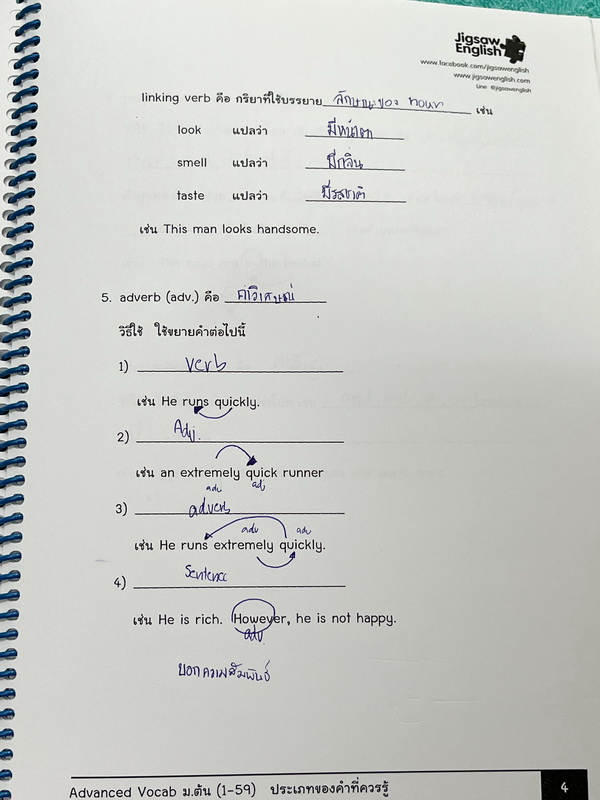 Jigsaw
English
www.facebook.com/jigsawenglish
www.jigsawenglish.com
Line @jigsawenglish
linking verb คือ กริยาที่ใช้บรรยาย ลักษณะของ noun เช่น
look แปลว่า มีหน้าตา
smell แปลว่า มีกลิ่น
taste แปลว่า มีรสชาติ
เช่น This man looks handsome.
5. adverb (adv.) คือ คำวิเศษณ์
วิธีใช้ ใช้ขยายคำต่อไปนี้
1) verb
เช่น He runs quickly.
2) Adj.
เช่น an extremely quick runner
adv adj
3) adverb
adv adv
เช่น He runs extremely quickly.
4) Sentence
เช่น He is rich. However, he is not happy.
adv.
บอกความสัมพันธ์
Advanced Vocab ม.ต้น (1-59) ประเภทของคำที่ควรรู้ 4